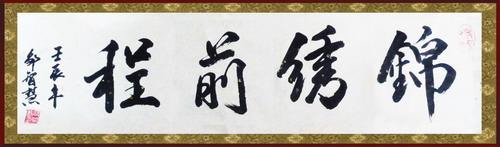 錦绣前程
壬辰年